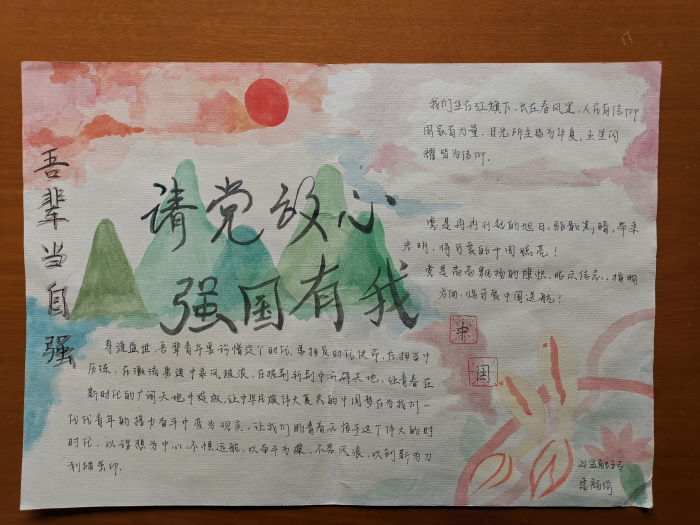 吾辈当自强
请党放心
强国有我
我们生在红旗下,长在春风里,人民有信仰
国家有力量,目光所至皆为华夏,五星闪
耀皆为信仰.
党是冉冉升起的旭日,驱散黑暗,带来
光明,将可爱的中国照亮!
党是高高飘扬的旗帜,昭示信念,指明
方向,将可爱中国运航!
身逢盛世,吾辈青年当珍惜这个时代,肩担负时代使命,在担当中
历练,在激流勇进中乘风破浪,在披荆斩棘中开辟天地,让青春在
新时代的广阔天地中绽放,让中华民族伟大复兴的中国梦在为我们一
代代青年的接力奋斗中变为现实,让我们的青春无悔于这个伟大的时
时代,以理想为中心,不惧远航,以奋斗为桨,不畏风浪,以创新为刀
利
中
国
21金融